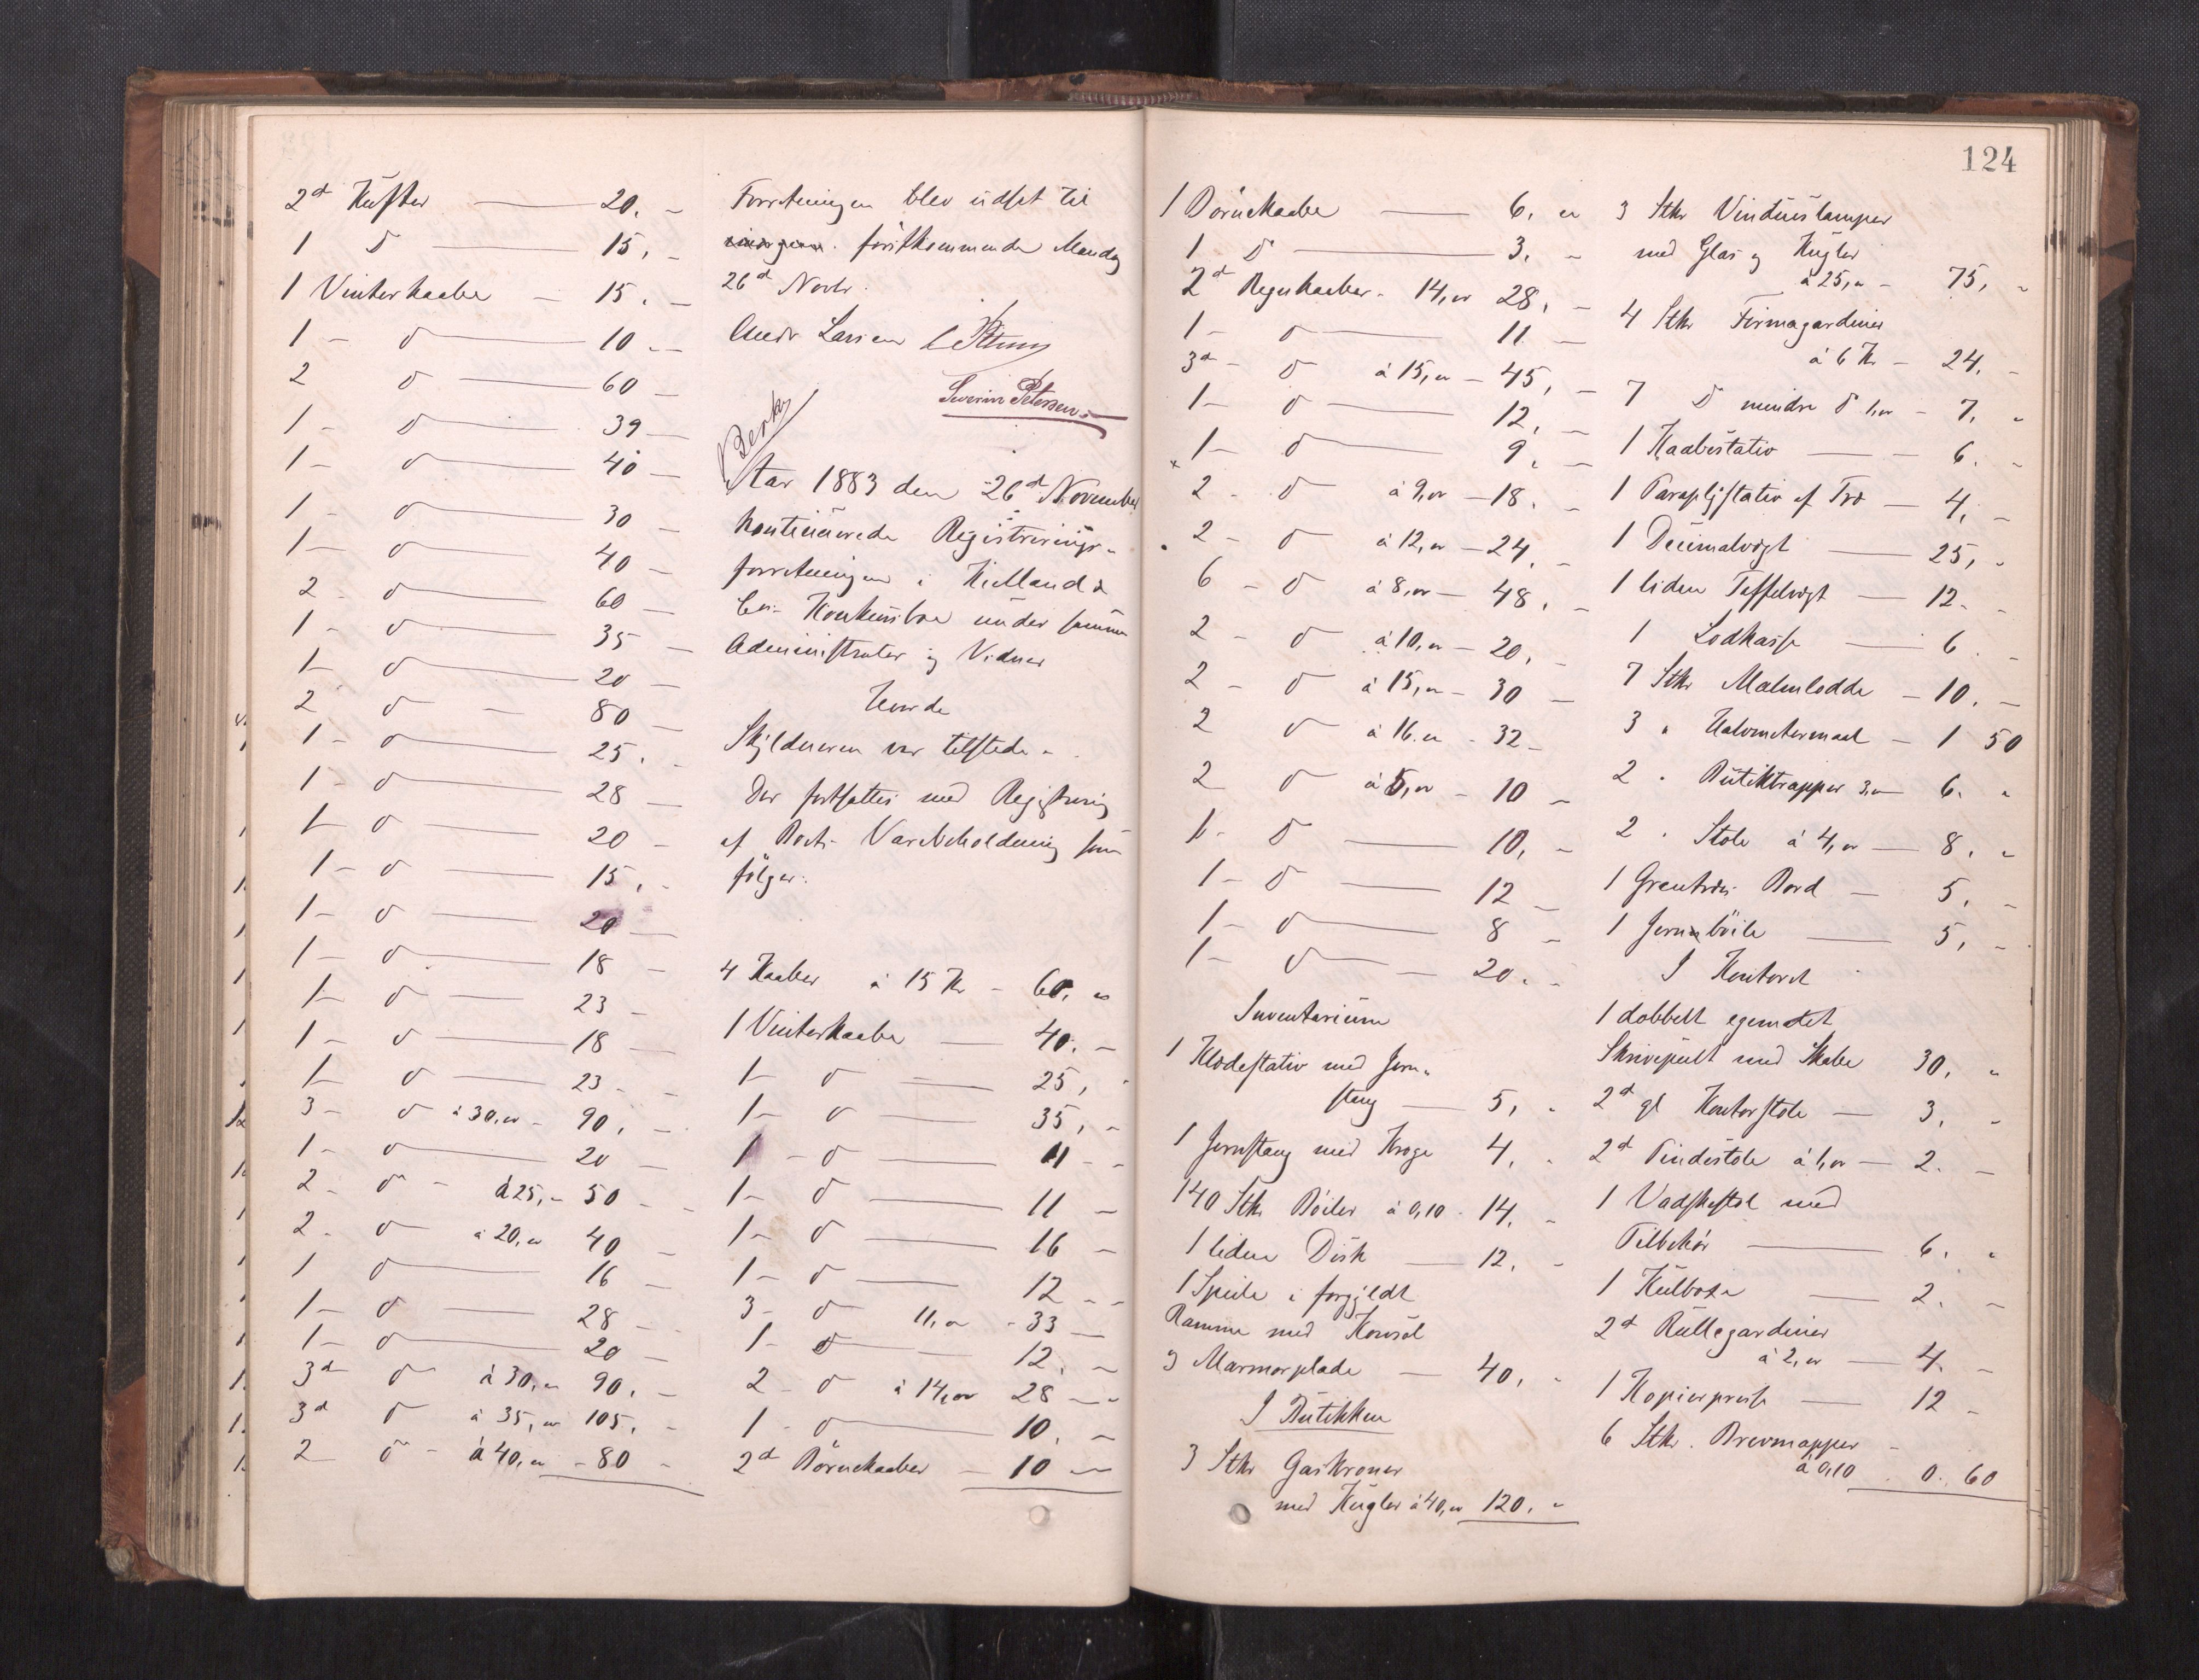 2d Kufter — 20. -
1 do — 15. -
1 Vinterkaabe — 15. -
1 - do — 10 -
2 do — 60 -
1 - do — 39 -
1 - do — 40 -
1 - do — 30 -
1 - do — 40 -
2 - do — 60 -
1 - do — 35 -
1 - do — 20 -
2 do — 80 -
1 - do — 25. -
1 - do — 28 -
1 - do — 20 -
1 - do — 15. -
1 - do — 20 -
1 - do — 18 -
1 - do — 23 -
1 - do — 18 -
1 - do — 23 -
3 - do à 30,00 - 90. -
1 - do — 20 -
2 - do - à 25,- 50 -
2 - do à 20,00 40 -
1 do — 16 -
1 - do — 28 -
1 - do — 20 -
3d do à 30,00 90. -
3d do à 35,00 105. -
2 do - à 40,00 - 80 -
Forretningen blev udsat til
imorgen. förstkommende Mandag
26d Novbr.
Andr Larsen
Severin Petersen
Aar 1883 den 26d November
kontinuerede Registrerings-
forretningen i Kielland &
Co's Konkursbo under samme
Administrator og Vidner
Hvorda
Skyldneren var tilstede.
Der fortsattes med Registrering
af Boets Varebeholdning som
fölger:
4 Kaaber à 15 Kr - 60. "
1 Vinterkaabe — 40. -
1 - do — 25, -
1 - do — 35, -
1 - do — 11 - -
1 - do — 11 -
1 - do — 16 -
1 - do — 12 - -
3 - do 11,00 - 33 -
1 - do — 12. -
2 - do à 14,00 28 -
1 - do — 10. -
2d Börnekaaber — 10 -
124
1 Börnekaabe — 6. "
1 do — 3. -
2d Regnkaaber - 14,00 28. -
1 - do — 11 -
3d - do à 15,00 - 45, -
1 - do — 12, -
1 - do — 9. -
2 - do à 9,00 - 18. -
2 - do à 12,00 - 24. -
6 - do à 8,00 - 48. -
2 - do à 10,00 - 20, -
2 - do à 15,00 - 30 -
2 do à 16.00 - 32 -
2 do à 5,00 - 10 -
1 - do — 10, -
1 - do — 12 -
1 - do — 8 -
1 - do — 20. -
Inventarium
1 Klædestativ med Jern-
stang — 5, "
1 Jernstang med Kroge 4. "
140 Stk Böiler à 0,10 - 14. -
1 liden Disk — 12. -
1 Speile i forgyldt
Ramme med Konsol
og Marmorplade — 40, "
I Butikken
3 Stk Gaskroner
med Kugler à 40,00 120. "
3 Stkr Vinduslamper
med Glas og Kugler
à 25,00 - 75, "
4 Stkr Firmagardiner
à 6 Kr - 24. -
7 do mindre do 1,00 - 7. "
1 Kaabestativ — 6. -
1 Paraplystativ af Træ — 4, -
1 Decimalvægt — 25, "
1 liden Taffelvægt — 12. -
1 Lodkasse — 6. -
7 Stkr Malmlodder - 10. -
3 " Halvmetermaal - 1 50
2 " Butiktrapper 3,00 6. "
2 " Stole à 4,00 — 8. "
1 Grentræs Bord — 5, -
1 Jernböile — 5, -
I Kontoret
1 dobbelt egemalet
Skrivepult med Skabe 30, "
2d gl Kontorstole — 3, -
2d Pindestole à 1,00 — 2. -
1 Vadskestol med
Tilbehör — 6. "
1 Kulboxe — 2. -
2d Rullegardiner
à 2,00 — 4. -
1 Kopierpresse — 12 -
6 Stkr. Brevmapper -
à 0,10 . 0. 60